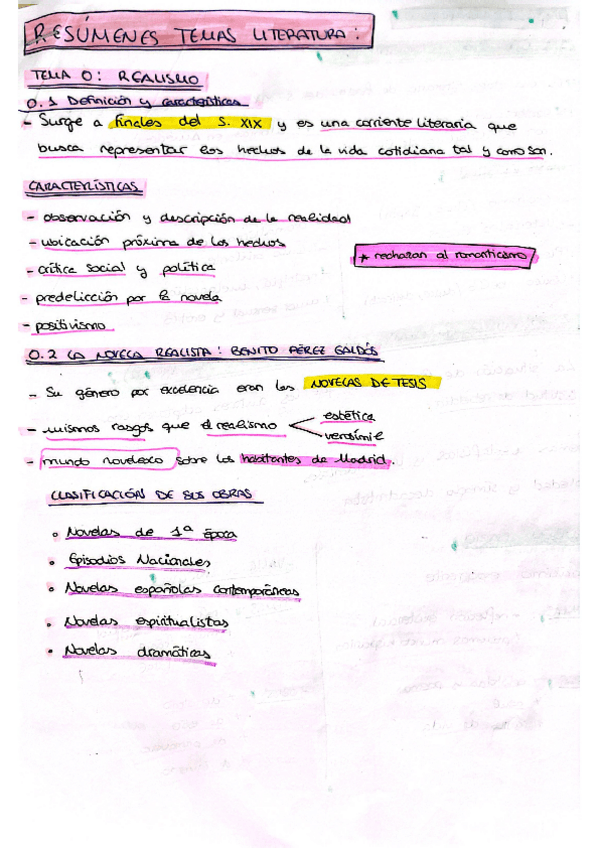 RESÚMENES TEMAS LITERATURA:
TEMA 0: REALISMO
0.1 Definición y características
- Surge a finales del S. XIX y es una corriente literaria que
busca representar los hechos de la vida cotidiana tal y como son.
CARACTERÍSTICAS
- observación y descripción de la realidad
- ubicación próxima de los hechos
* rechazan al romanticismo
- crítica social y política
- predelicción por la novela
- positivismo
0.2 LA NOVELA REALISTA: BENITO PÉREZ GALDÓS
- Su género por excelencia eran las NOVELAS DE TESIS
- mismos rasgos que el realismo < estética
verosímil
- mundo novelesco sobre los habitantes de Madrid.
CLASIFICACIÓN DE SUS OBRAS
• Novelas de 1ª Época
• Episodios Nacionales
• Novelas españolas contemporáneas
• Novelas espiritualistas
• Novelas dramáticas